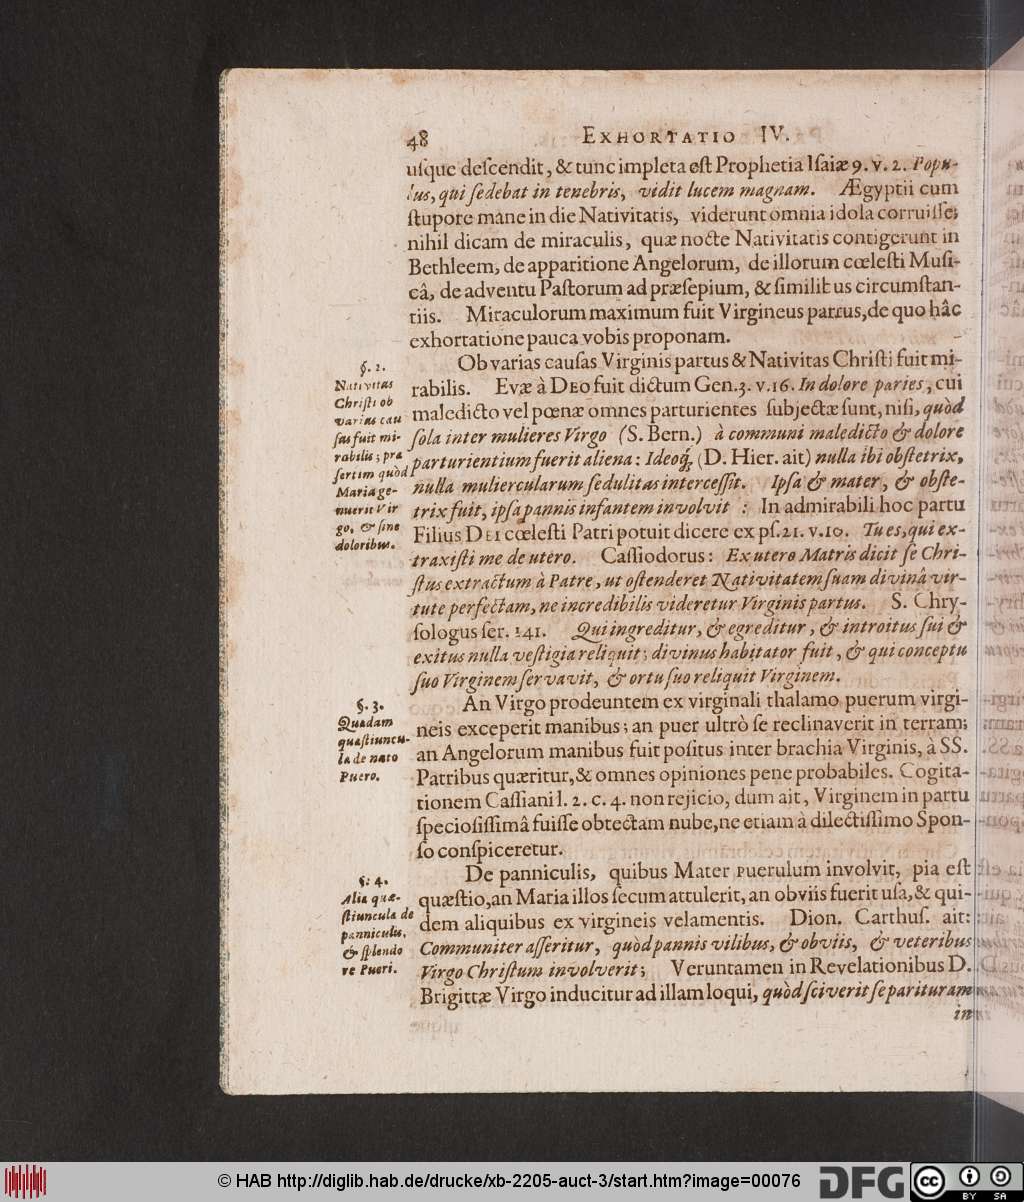 48 EXHORTATIO IV.
uſque deſcendit, & tunc impleta eſt Prophetia Iſaiæ 9. v. 2. Popu-
lus, qui ſedebat in tenebris, vidit lucem magnam. Ægyptii cum
ſtupore mane in die Nativitatis, viderunt omnia idola corruiſſe;
nihil dicam de miraculis, quæ nocte Nativitatis contigerunt in
Bethleem, de apparitione Angelorum, de illorum cœleſti Muſi-
câ, de adventu Paſtorum ad præſepium, & ſimilibus circumſtan-
tiis. Miraculorum maximum fuit Virgineus partus, de quo hâc
exhortatione pauca vobis proponam.
§. 2.
Nativitas
Chriſti ob
varias cau
ſas fuit mi-
rabilis; præ
ſertim quòd
Maria ge-
nuerit Vir
go, & ſine
doloribus.
Ob varias cauſas Virginis partus & Nativitas Chriſti fuit mi-
rabilis. Evæ à DEO fuit dictum Gen. 3. v. 16. In dolore paries, cui
maledicto vel pœnæ omnes parturientes ſubjectæ ſunt, niſi, quòd
ſola inter mulieres Virgo (S. Bern.) à communi maledicto & dolore
parturientium fuerit aliena: Ideoq́; (D. Hier. ait) nulla ibi obſtetrix,
nulla muliercularum ſedulitas interceſſit. Ipſa & mater, & obſte-
trix fuit, ipſa pannis infantem involvit : In admirabili hoc partu
Filius DEI cœleſti Patri potuit dicere ex pſ. 21. v. 10. Tu es, qui ex-
traxiſti me de utero. Caſſiodorus: Ex utero Matris dicit ſe Chri-
ſtus extractum à Patre, ut oſtenderet Nativitatem ſuam divinâ vir-
tute perfectam, ne incredibilis videretur Virginis partus. S. Chry-
ſologus ſer. 141. Qui ingreditur, & egreditur, & introitus ſui &
exitus nulla veſtigia reliquit; divinus habitator fuit, & qui conceptu
ſuo Virginem ſervavit, & ortu ſuo reliquit Virginem.
§. 3.
Quædam
quæſtiuncu-
la de nato
Puero.
An Virgo prodeuntem ex virginali thalamo puerum virgi-
neis exceperit manibus; an puer ultrò ſe reclinaverit in terram;
an Angelorum manibus fuit poſitus inter brachia Virginis, à SS.
Patribus quæritur, & omnes opiniones pene probabiles. Cogita-
tionem Caſſiani l. 2. c. 4. non rejicio, dum ait, Virginem in partu
ſpecioſiſſimâ fuiſſe obtectam nube, ne etiam à dilectiſſimo Spon-
ſo conſpiceretur.
§. 4.
Alia quæ-
ſtiuncula de
panniculis,
& ſplendo
re Pueri.
De panniculis, quibus Mater puerulum involvit, pia eſt
quæſtio, an Maria illos ſecum attulerit, an obviis fuerit uſa, & qui-
dem aliquibus ex virgineis velamentis. Dion. Carthuſ. ait:
Communiter aſſeritur, quòd pannis vilibus, & obviis, & veteribus
Virgo Chriſtum involverit; Veruntamen in Revelationibus D.
Brigittæ Virgo inducitur ad illam loqui, quòd ſciverit ſe parituram
in
© HAB http://diglib.hab.de/drucke/xb-2205-auct-3/start.htm?image=00076
DFG
cc BY SA